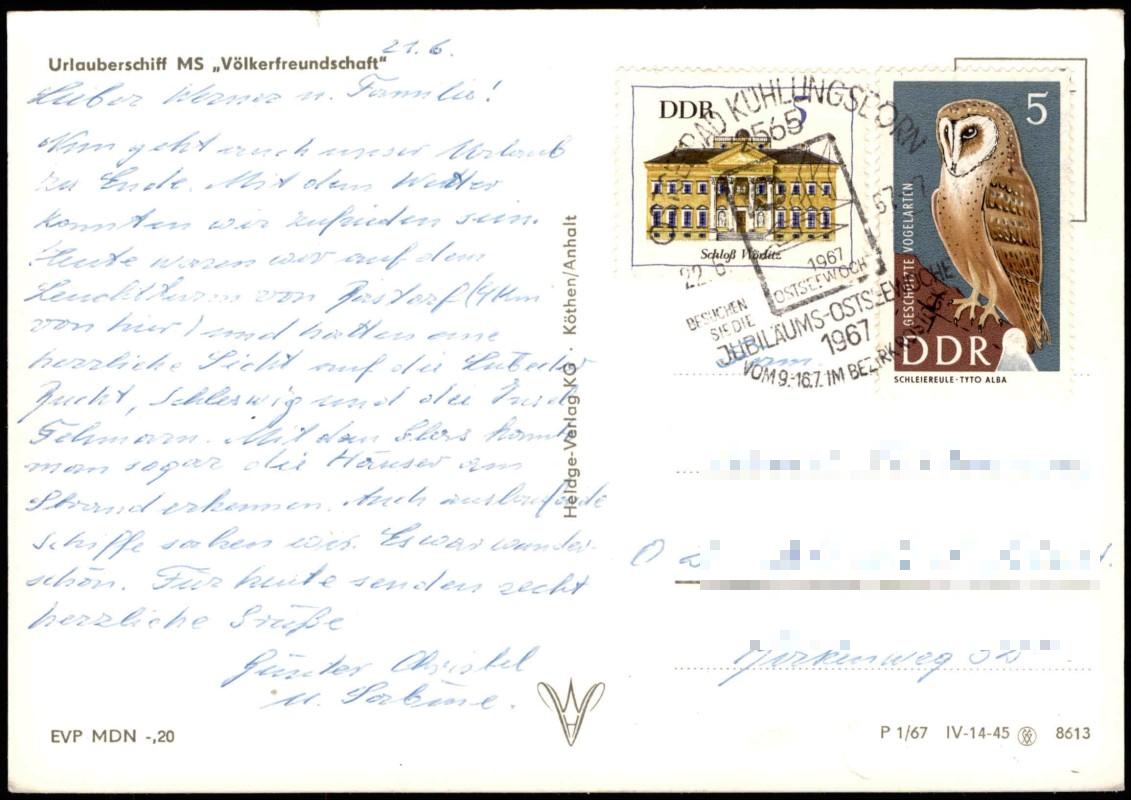 Urlauberschiff MS „Völkerfreundschaft“
21.6.
Lieber Werner u. Familie!
Nun geht auch unser Urlaub
zu Ende. Mit dem Wetter
konnten wir zufrieden sein.
Heute waren wir auf dem
Leuchtturm von Bastorf (4 km
von hier) und hatten eine
herrliche Sicht auf die Lübecker
Bucht, Schleswig und die Insel
Fehmarn. Mit dem Glas konnte
man sogar die Häuser am
Strand erkennen. Auch auslaufende
Schiffe sahen wir. Es war wunder-
schön. Für heute senden recht
herzliche Grüße
Günter Christel
u. Sabine.
EVP MDN -,20
Heldge-Verlag KG · Köthen/Anhalt
DDR 5
Schloß Wörlitz
5
GESCHÜTZTE VOGELARTEN
DDR
SCHLEIEREULE · TYTO ALBA
OSTSEEBAD KÜHLUNGSBORN
2565
22.6. 67
1967
OSTSEEWOCHE
BESUCHEN
SIE DIE
JUBILÄUMS-OSTSEEWOCHE
1967
VOM 9.-16.7. IM BEZIRK ROSTOCK
P 1/67 IV-14-45 8613